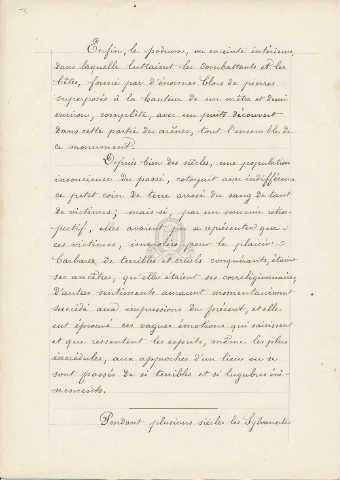 Enfin, le podium, ou enceinte intérieure,
dans laquelle luttaient les combattants et les
bêtes, formé par d'énormes blocs de pierres
superposés à la hauteur de un mètre et demi
environ, complète, avec un puits découvert
dans cette partie des arènes, tout l'ensemble de
ce monument.
Depuis bien des siècles, une population
insoucieuse du passé, cotoyait avec indifférence
ce petit coin de terre arrosé du sang de tant
de victimes ; mais si, par un examen
elles avaient pu se représenter que
ces victimes, immolées pour le plaisir
barbare de terribles et cruels conquérants, étaient
ses ancêtres, qu'elles étaient ses correligionnaires,
d'autres sentiments auraient momentanément
succédé aux impressions du présent, et elle
eut éprouvé ces vagues émotions qui saisissent
et que ressentent les esprits, même les plus
incrédules, aux approches d'un lieu où se
sont passés de si terribles et si lugubres évè-
nements.
Pendant plusieurs siècles les